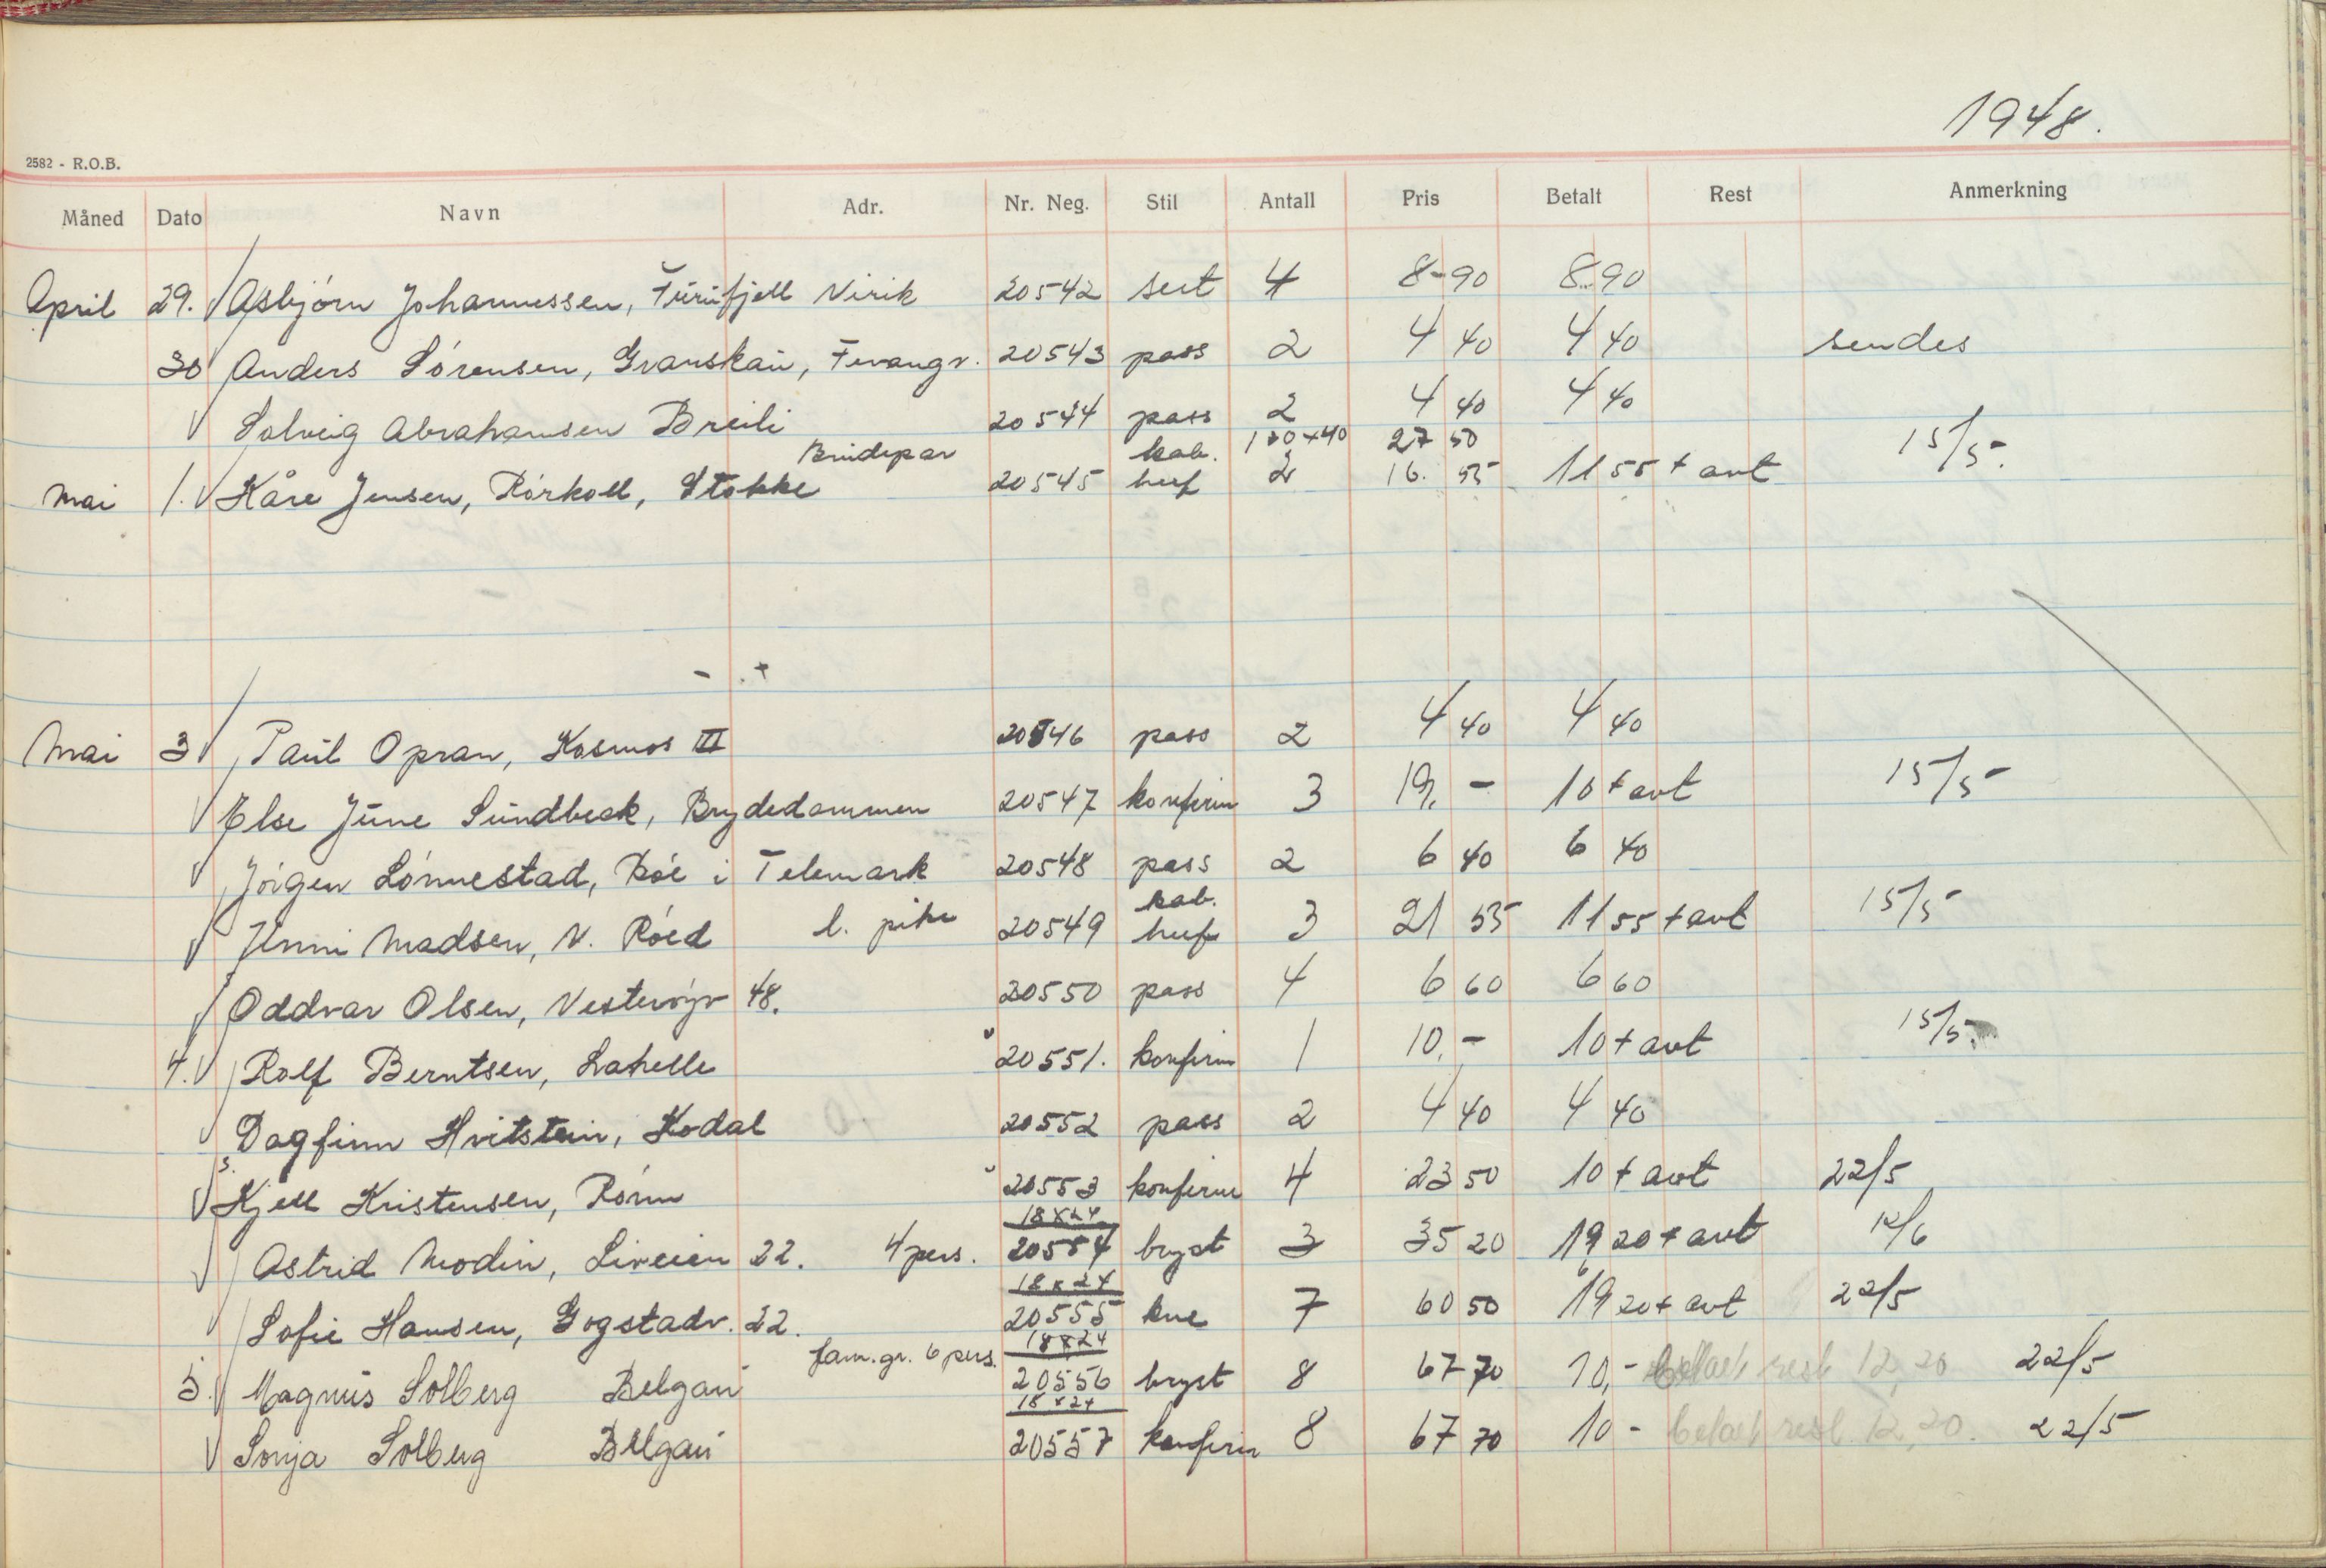 1948.
2582 - R.O.B.
Måned Dato Navn Adr. Nr. Neg. Stil Antall Pris Betalt Rest Anmerkning
April 29. Asbjørn Johannessen, Furufjell Virik 20542 4 8-90 8.90
30 Anders Sørensen, Granskau, Fevangv. 20543 pass 2 4 40 4 40 sendes
Solveig Abrahamsen Breili 20544 pass 2 4 40 4 40
Brudepar kab. 27 50
Mai 1. Kåre Jensen, Rørkoll, Stokke 20545 2 16. 55 11 55 + avt 15/5.
Mai 3 Paul Opran, Kosmos III 20546 pass 2 4 40 4 40
Else June Sundbeck, Brydedammen 20547 konfirm 3 19,- 10 + avt 15/5
Jørgen Lønnestad, Bøe i Telemark 20548 pass 2 6 40 6 40
kab.
Jenni Madsen, N. Røed l. pike 20549 3 21 55 11 55 + avt 15/5
Oddvar Olsen, Vesterøyv 48. 20550 pass 4 6 60 6 60
4. Rolf Berntsen, Lahelle 20551. konfirm 1 10,- 10 + avt 15/5.
Dagfinn Hvitstein, Kodal 20552 pass 2 4 40 4 40
Kjell Kristensen, Rørin 20553 konfirm 4 23 50 10 + avt 22/5
18x24
Astrid Modin, Liveien 22. 4 pers. 20554 bryst 3 35 20 19 20 + avt 12/6
18x24
Sofie Hansen, Gogstadv. 22. 20555 kne 7 60 50 19 20 + avt 22/5
fam.gr. 6 pers. 18x24
5. Magnus Solberg Belgau 20556 bryst 8 67 70 10,- betalt rest 12,20 22/5
18x24
Sonja Solberg Belgau 20557 konfirm 8 67 70 10 - betalt rest 12,20. 22/5